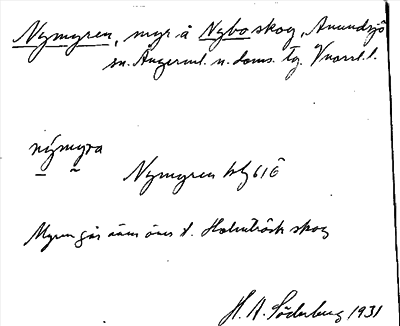 Nymyren, myr å Nybo skog, Anundsjö
sn. Ångerml. n. doms. tg. Vnorrl. l.
nýmyra
Nymyren hz 61Ö
Myren går även över t. Holmträsk skog
H. A. Söderberg 1931